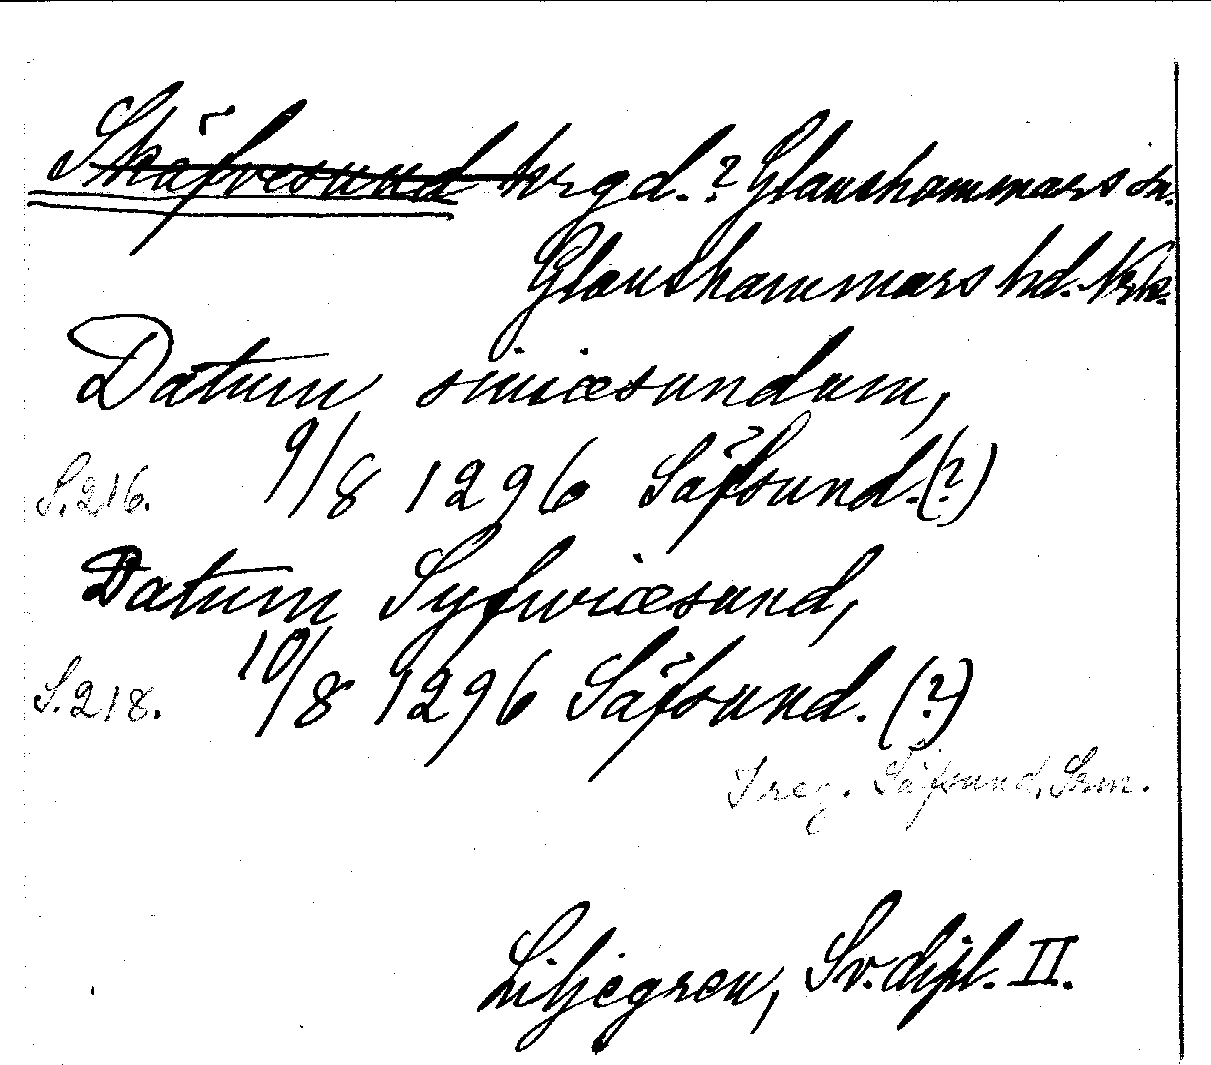 Skäfvesund hrgd.? Glanshammars sn.
Glanshammars hd. Nrk.
Datum siuiæsundum,
S.216. 9/8 1296 Säfsund.(?)
Datum Syfwiæsund,
S.218. 10/8 1296 Säfsund. (?)
Säfsund, Srm.
Liljegren, Sv. dipl. II.